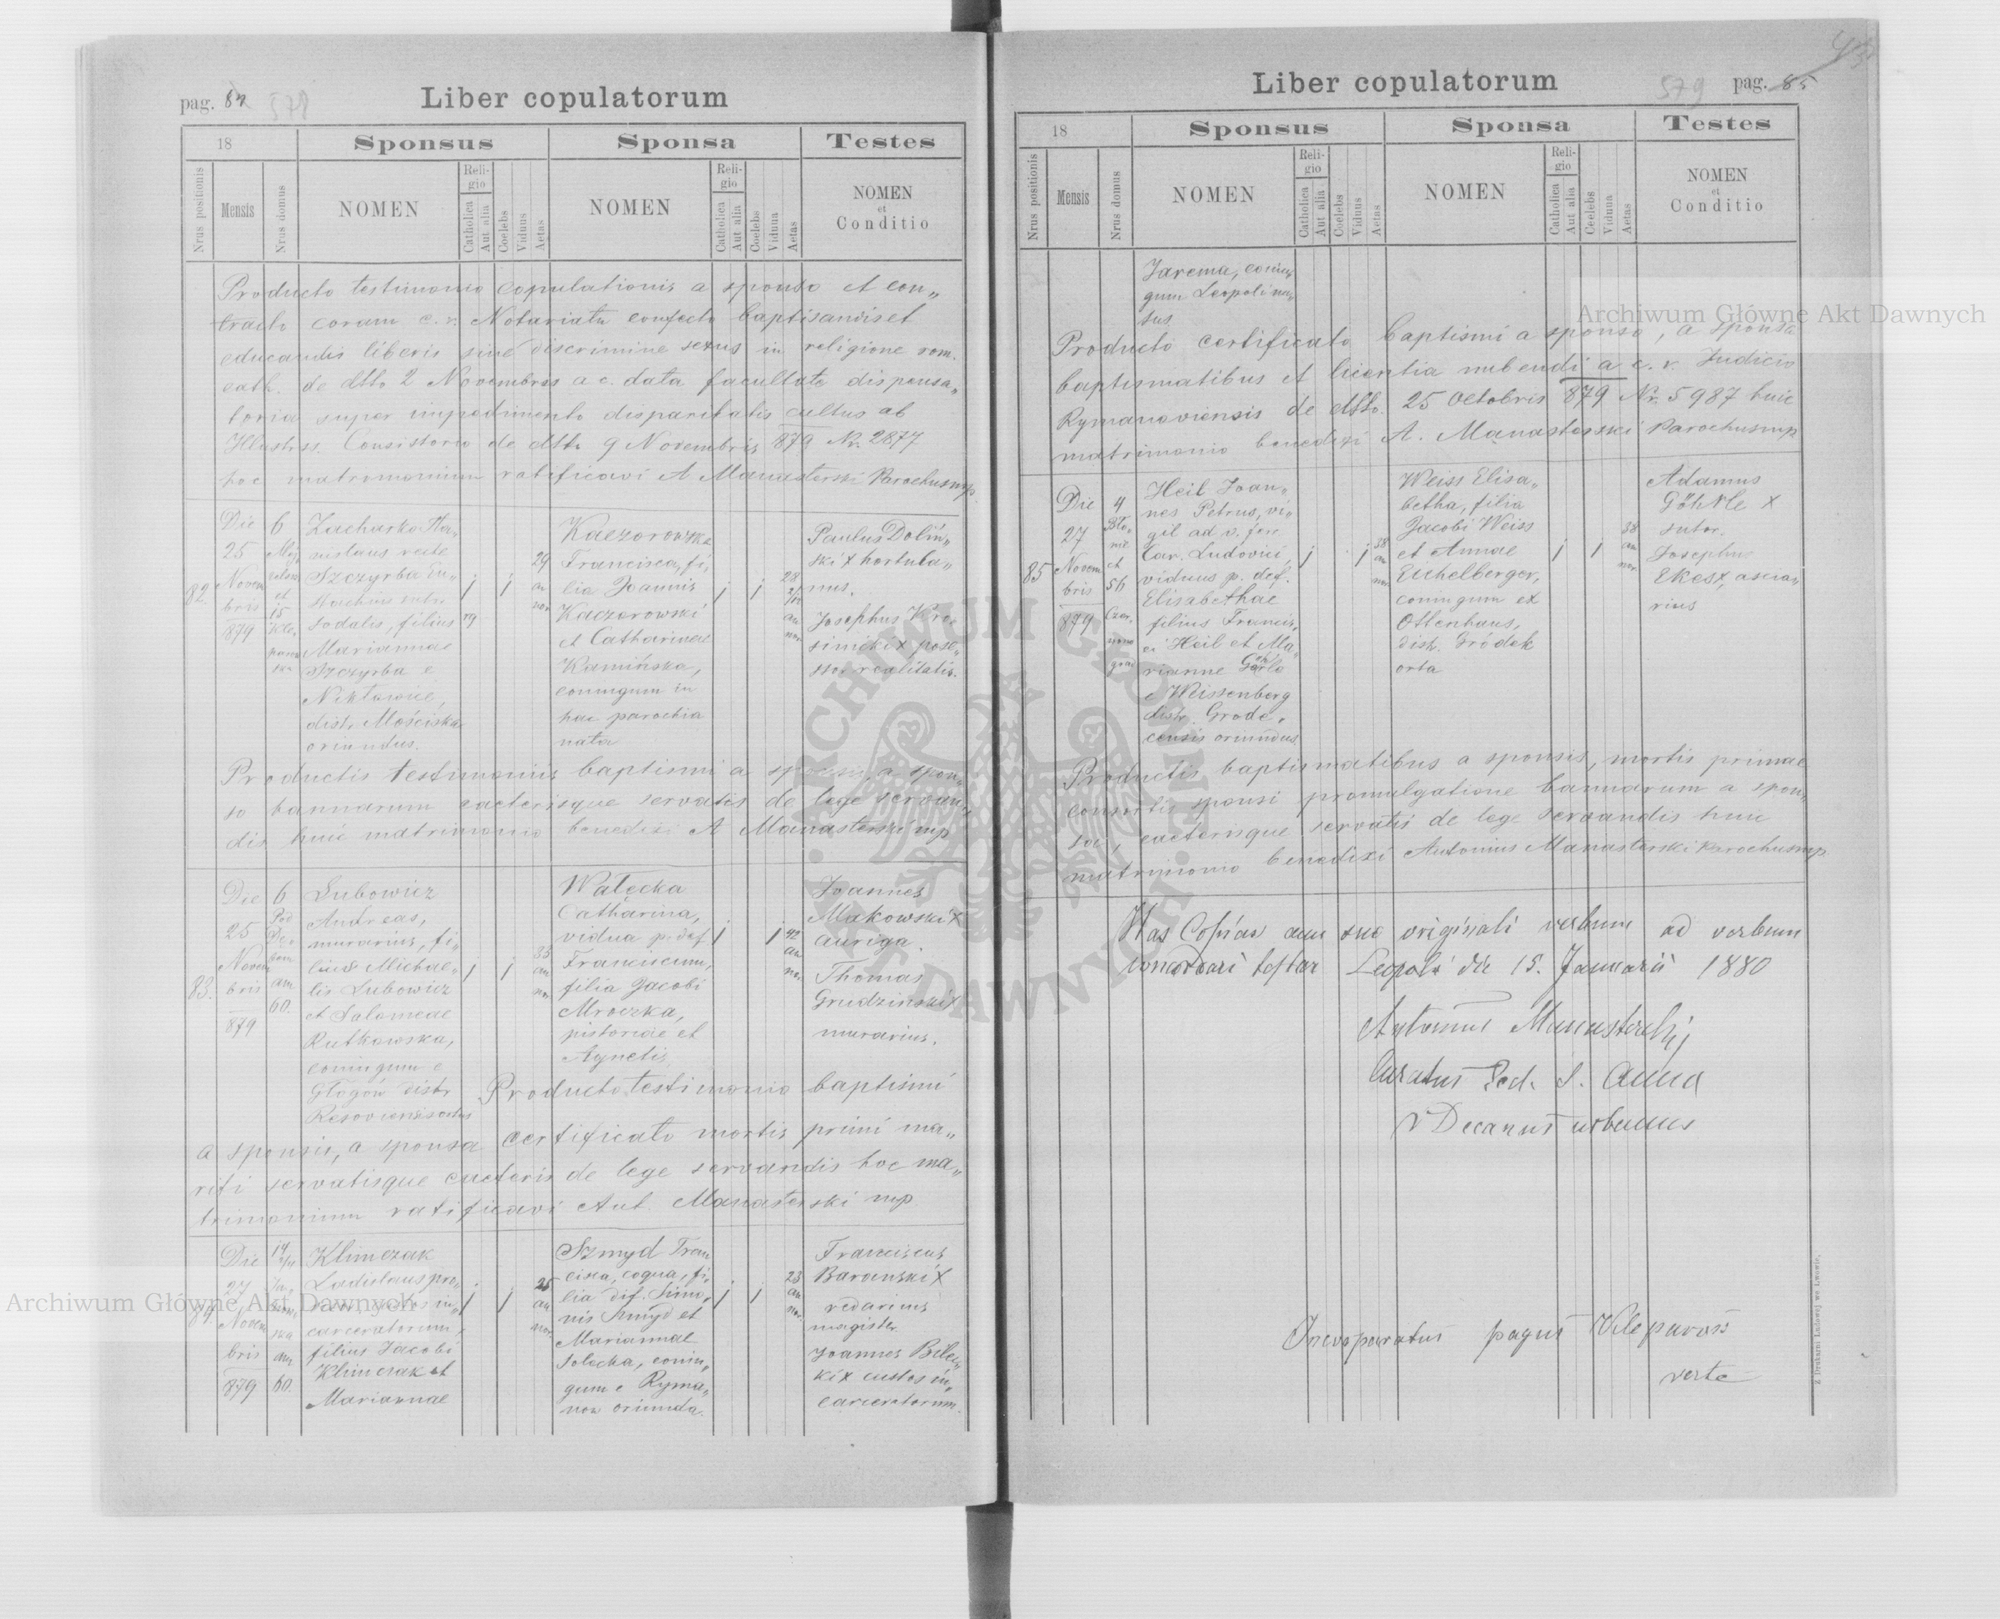 pag. 84
579
Liber copulatorum
18
Sponsus
Sponsa
Testes
Nrus positionis
Mensis
Nrus domus
NOMEN
Religio
Catholica
Aut alia
Coelebs
Viduus
Aetas
NOMEN
Religio
Catholica
Aut alia
Coelebs
Vidua
Aetas
NOMEN
et
Conditio
Producto testimonio copulationis a sponso et con„
tractu coram c. r. Notariatu confecto baptisandis et
educandis liberis sine discrimine sexus in religione rom.
cath. de dtto 2 Novembris a c. data facultate dispensa„
toria super impedimento disparitatis cultus ab
Illustriss. Consistorio de dtto 9 Novembris 879 Nr. 2877
hoc matrimonium ratificavi A Manasterski Parochus mp.
82.
Die
25
Novem
bris
879
6
et
15
Zacharko Sta„
nislaus recte
Szczyrba Eu„
stachius
sodalis, filius
Mariannae
Szczyrba e
Niktowice,
distr. Mościska
oriundus.
29
an
nor
Kaczorowska
Francisca, fi„
lia Joannis
Kaczorowski
et Catharinae
Kamińska,
coniugum in
hac parochia
nata
28
an
nor
Paulus Doliń„
ski x hortula„
nus.
Josephus Kro„
sinicki x pose„
ssor realitatis.
Productis testimoniis baptismi a sponsis, a spon„
so bannarum caeterisque servatis de lege servan„
dis huic matrimonio benedixi A Manasterski mp
83.
Die
25
Novem
bris
879
6
Pod
am
60.
Lubowicz
Andreas,
murarius, fi„
lius Michae„
lis Lubowicz
et Salomeae
Rutkowska,
coniugum e
Głogów distr
Resoviensi ortus
35
an
nor
Wałęcka
Catharina,
vidua p. def
Franciscum,
filia Jacobi
Mroczka,
pistoriae et
Agnetis
42
an
nor.
Joannes
Makowski x
auriga.
Thomas
Grudzinski x
murarius.
Producto testimonio baptismi
a sponsis, a sponsa certificato mortis primi ma„
riti servatisque caeteris de lege servandis hoc ma„
trimonium ratificavi Ant. Manasterski mp
84.
Die
27
Novem
bris
879
14
am
60.
Klimczak
Ladislaus pro„
custos in„
carceratorum,
filius Jacobi
Klimczak et
Mariannae
25
an
nor.
Szmyd Fran
cisca, coqua, fi„
lia def. Simo„
nis Szmyd et
Mariannae
Solecka, coniu„
gum e Ryma„
now oriunda.
23
an
nor.
Franciscus
Baranski x
redarius
magister.
Joannes Bilec„
ki x custos in„
carceratorum.
579
pag. 85
Liber copulatorum
18
Sponsus
Sponsa
Testes
Nrus positionis
Mensis
Nrus domus
NOMEN
Religio
Catholica
Aut alia
Coelebs
Viduus
Aetas
NOMEN
Religio
Catholica
Aut alia
Coelebs
Vidua
Aetas
NOMEN
et
Conditio
Jarema, coniu„
gum Leopoli na„
tus
Producto certificato baptismi a sponso, a sponsa
baptismatibus et licentia nubendi a c. r. Judicio
Rymanoviensis de dtto. 25 Octobris 879 Nr. 5987 huic
matrimonio benedixi A. Manasterski Parochus mp
85
Die
27
Novem
bris
879
4
et
56
Heil Joan„
nes Petrus, vi„
gil ad v. ferr
Car. Ludovici,
viduus p. def.
Elisabethae
filius Francis„
ci Heil et Ma„
rianne
e Weissenberg
distr. Grode„
censis oriundus.
38
an
nor
Weiss Elisa„
betha, filia
Jacobi Weiss
et Annae
Eichelberger,
coniugum ex
Ottenhaus,
distr. Gródek
orta
38
an
nor.
Adamus
Göhrle x
sutor.
Josephus
Ekes x, ascia„
rius
Productis baptismatibus a sponsis, mortis primae
consortis sponsi promulgatione bannarum a spon„
so, caeterisque servatis de lege servandis huic
matrimonio benedixi Antonius Manasterski Parochus mp
Has Copias cum suo originali verbum ad verbum
concordari testor Leopoli die 15. Januarii 1880
Antonius Manasterski
Curatus Eccl. S. Anna
VDecanus urbanus
pagus
verte
Z Drukarni Ludowej we Lwowie.
Archiwum Główne Akt Dawnych
Archiwum Główne Akt Dawnych
ARCHIWUM GŁÓWNE AKT DAWNYCH